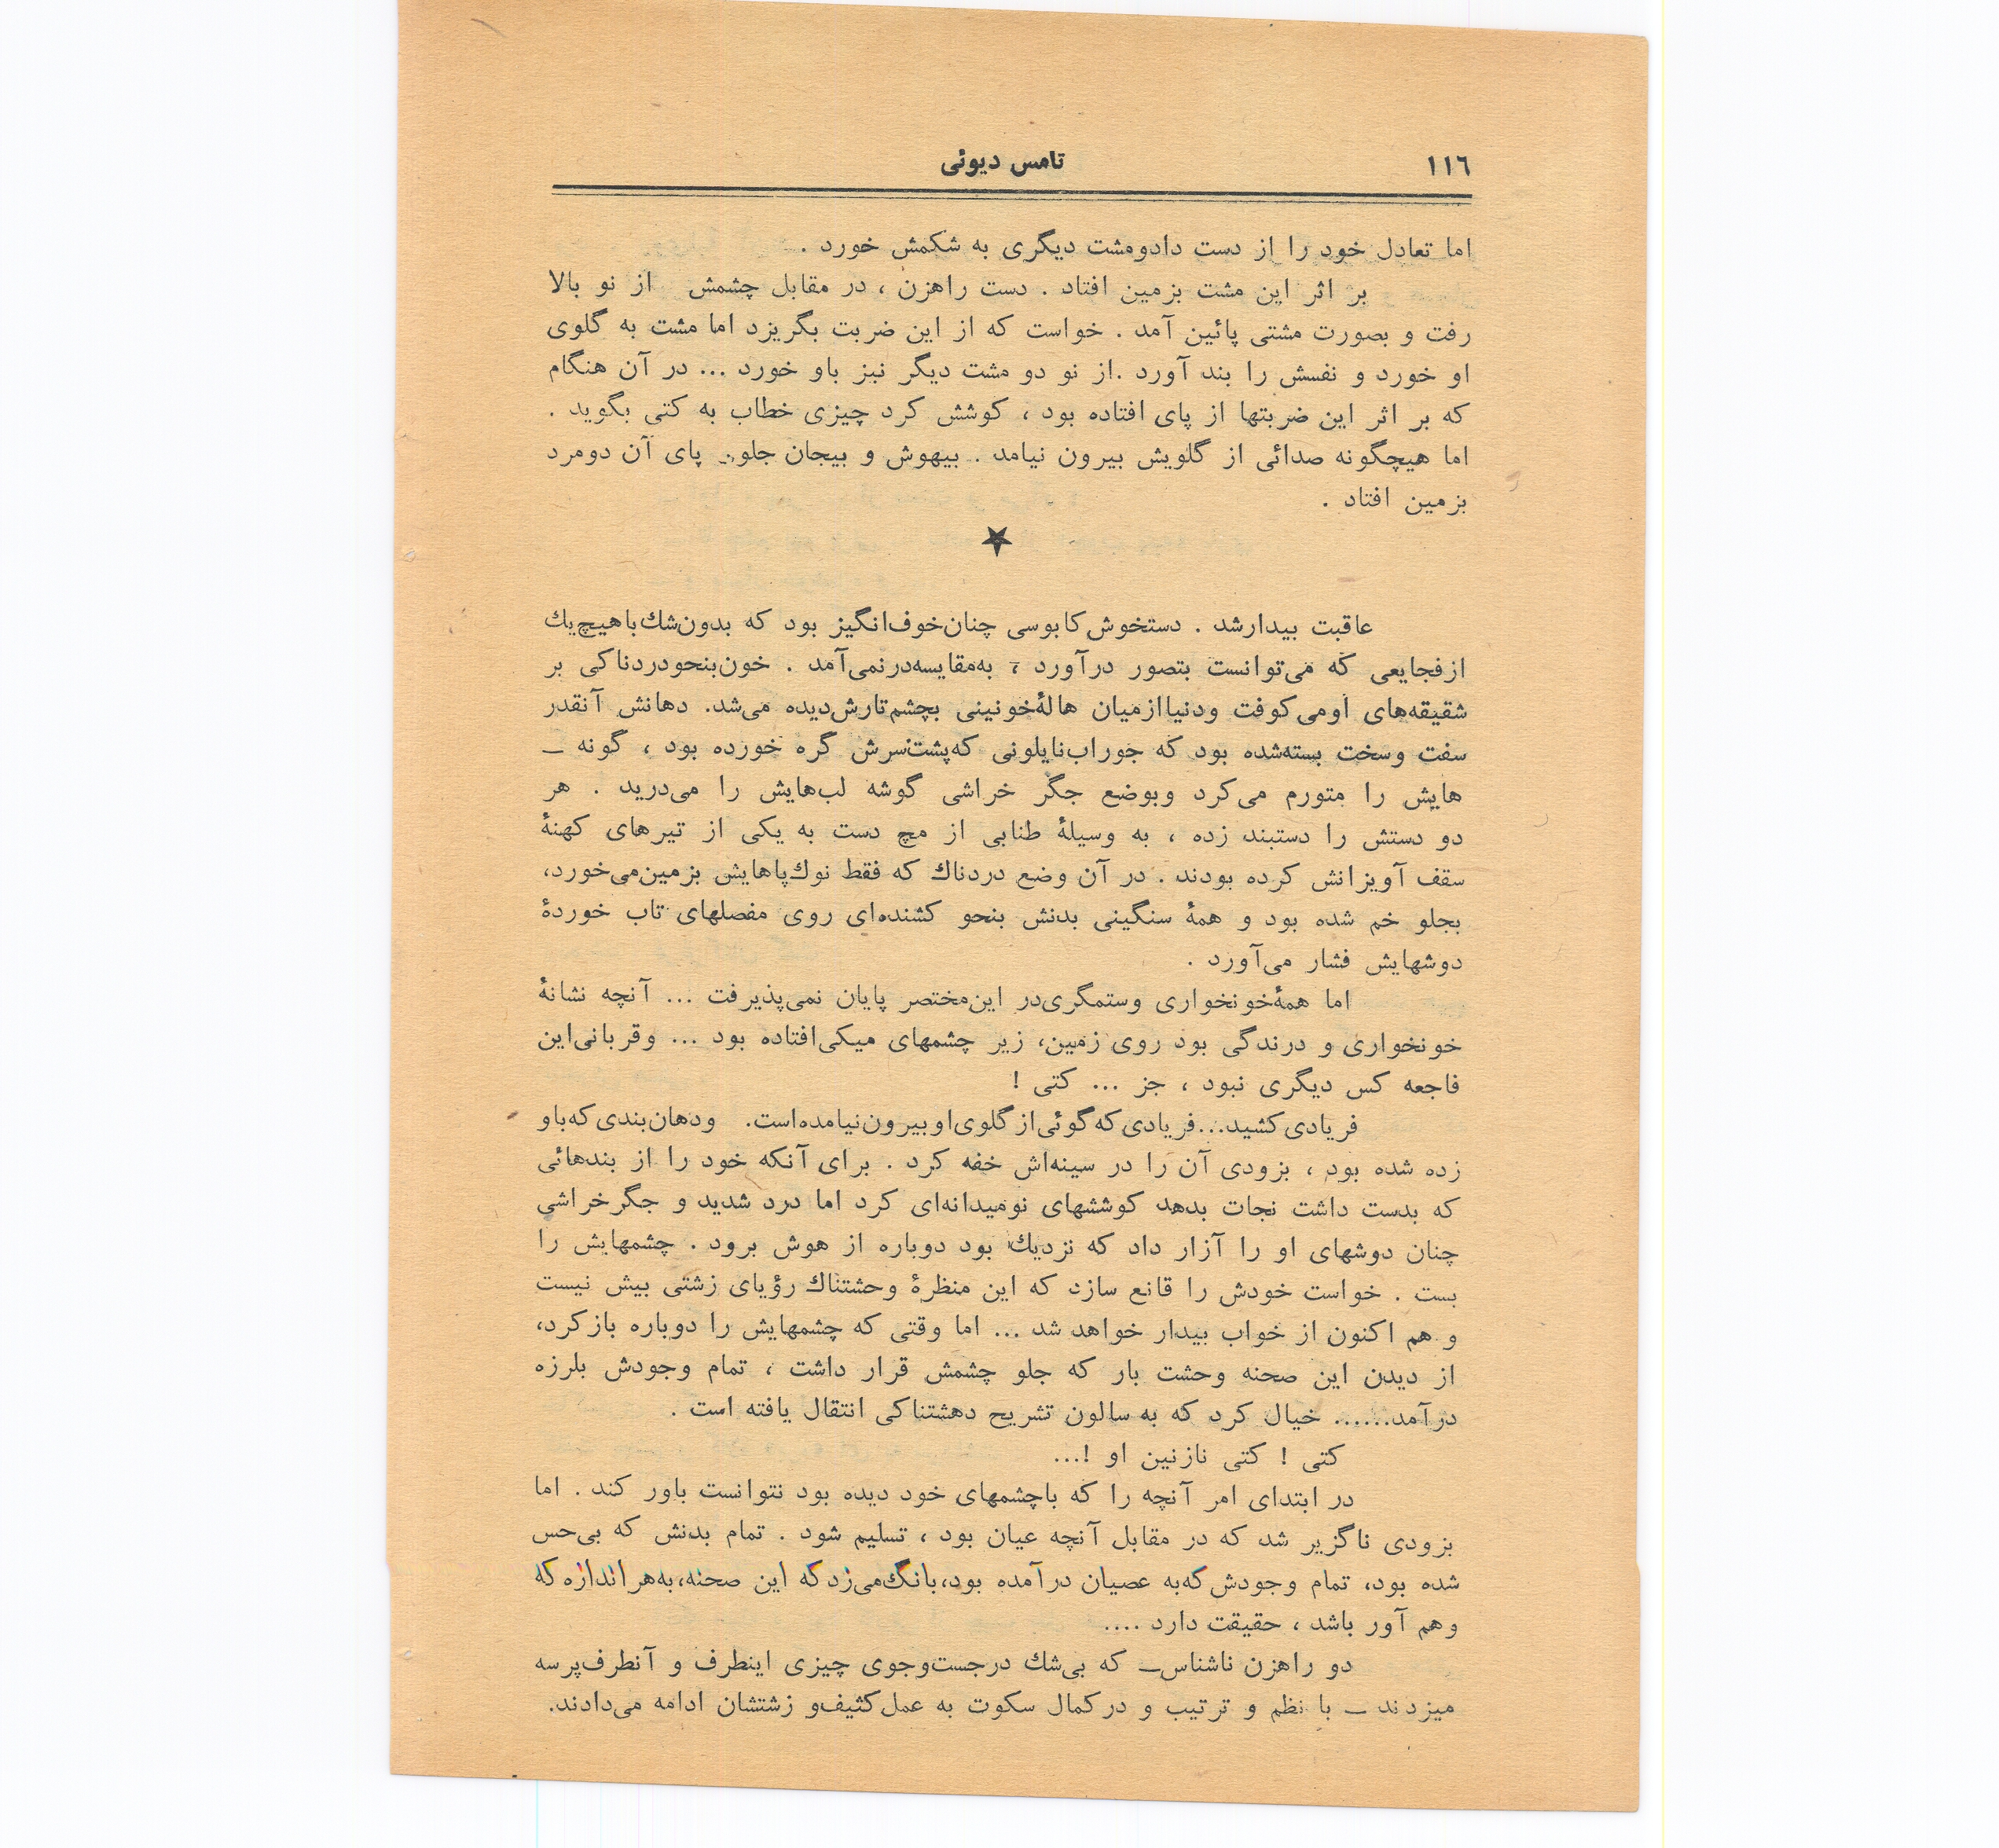 ١١٦
تامس دیوئی
اما تعادل خود را از دست دادومشت دیگری به شکمش خورد .
بر اثر این مشت بزمین افتاد . دست راهزن ، در مقابل چشمش از نو بالا
رفت و بصورت مشتی پائین آمد . خواست که از این ضربت بگریزد اما مشت به گلوی
او خورد و نفسش را بند آورد .از نو دو مشت دیگر نیز باو خورد ... در آن هنگام
که بر اثر این ضربتها از پای افتاده بود ، کوشش کرد چیزی خطاب به کتی بگوید .
اما هیچگونه صدائی از گلویش بیرون نیامد . بیهوش و بیجان جلو پای آن دومرد
بزمین افتاد .
★
عاقبت بیدارشد . دستخوش کابوسی چنان‌خوف‌انگیز بود که بدون‌شك‌باهیچ‌یك
ازفجایعی که می‌توانست بتصور درآورد ، به‌مقایسه‌درنمی‌آمد . خون‌بنحودردناکی بر
شقیقه‌های اومی‌کوفت ودنیاازمیان هالهٔ‌خونینی بچشم‌تارش‌دیده می‌شد. دهانش آنقدر
سفت وسخت بسته‌شده بود که جوراب‌نایلونی که‌پشت‌سرش گره خورده بود ، گونه ـ
هایش را متورم می‌کرد وبوضع جگر خراشی گوشه لب‌هایش را می‌درید . هر
دو دستش را دستبند زده ، به وسیلهٔ طنابی از مچ دست به یکی از تیرهای کهنهٔ
سقف آویزانش کرده بودند . در آن وضع دردناك که فقط نوك‌پاهایش بزمین‌می‌خورد،
بجلو خم شده بود و همهٔ سنگینی بدنش بنحو کشنده‌ای روی مفصلهای تاب خوردهٔ
دوشهایش فشار می‌آورد .
اما همهٔ‌خونخواری وستمگری‌در این‌مختصر پایان نمی‌پذیرفت ... آنچه نشانهٔ
خونخواری و درندگی بود روی زمین، زیر چشمهای میکی‌افتاده بود ... وقربانی‌این
فاجعه کس دیگری نبود ، جز ... کتی !
فریادی‌کشید...فریادی‌که‌گوئی‌ازگلوی‌اوبیرون‌نیامده‌است. ودهان‌بندی‌که‌باو
زده شده بود ، بزودی آن را در سینه‌اش خفه کرد . برای آنکه خود را از بندهائی
که بدست داشت نجات بدهد کوششهای نومیدانه‌ای کرد اما درد شدید و جگرخراشی
چنان دوشهای او را آزار داد که نزدیك بود دوباره از هوش برود . چشمهایش را
بست . خواست خودش را قانع سازد که این منظرهٔ وحشتناك رؤیای زشتی بیش نیست
و هم اکنون از خواب بیدار خواهد شد ... اما وقتی که چشمهایش را دوباره بازکرد،
از دیدن این صحنه وحشت بار که جلو چشمش قرار داشت ، تمام وجودش بلرزه
درآمد...... خیال کرد که به سالون تشریح دهشتناکی انتقال یافته است .
کتی ! کتی نازنین او !...
در ابتدای امر آنچه را که باچشمهای خود دیده بود نتوانست باور کند . اما
بزودی ناگزیر شد که در مقابل آنچه عیان بود ، تسلیم شود . تمام بدنش که بی‌حس
شده بود، تمام وجودش‌که‌به عصیان درآمده بود،بانگ‌می‌زدکه این صحنه،به‌هراندازه‌که
وهم آور باشد ، حقیقت دارد ....
دو راهزن ناشناس‌ـ که بی‌شك درجست‌وجوی چیزی اینطرف و آنطرف‌پرسه
میزدند ـ با نظم و ترتیب و درکمال سکوت به عمل‌کثیف‌و زشتشان ادامه می‌دادند.